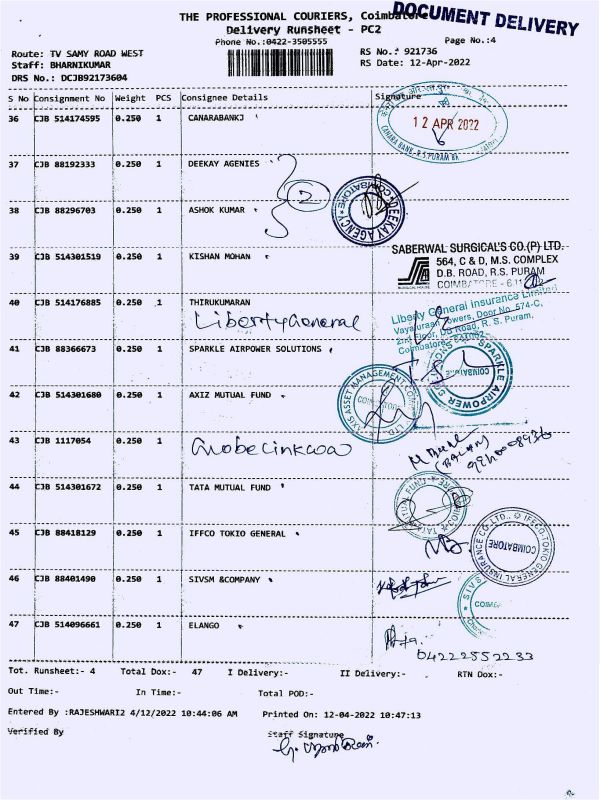 THE PROFESSIONAL COURIERS, Coimbatore
DOCUMENT DELIVERY
Delivery Runsheet - PC2
Phone No.:0422-3505555
Page No.:4
Route: TV SAMY ROAD WEST
RS No.: 921736
Staff: BHARNIKUMAR
RS Date: 12-Apr-2022
DRS No.: DCJB92173604
S No Consignment No Weight PCS Consignee Details Signature
36 CJB 514174595 0.250 1 CANARABANKJ
12 APR 2022
CANARA BANK - R.S PURAM BR
37 CJB 88192333 0.250 1 DEEKAY AGENIES
2
DEEKAY AGENCY COIMBATORE
38 CJB 88296703 0.250 1 ASHOK KUMAR
39 CJB 514301519 0.250 1 KISHAN MOHAN
SABERWAL SURGICAL'S CO.(P) LTD.
564, C & D, M.S. COMPLEX
D.B. ROAD, R.S. PURAM
COIMBATORE - 641
40 CJB 514176885 0.250 1 THIRUKUMARAN
Liberty General
Liberty General Insurance Limited
Vayaluraan Towers, Door No. 574-C,
2nd Floor, DB Road, R. S. Puram,
Coimbatore
41 CJB 88366673 0.250 1 SPARKLE AIRPOWER SOLUTIONS
SPARKLE AIRPOWER SOLUTIONS COIMBATORE
42 CJB 514301680 0.250 1 AXIZ MUTUAL FUND
AXIS ASSET MANAGEMENT COMPANY LTD. COIMBATORE
43 CJB 1117054 0.250 1
(BALAN)
44 CJB 514301672 0.250 1 TATA MUTUAL FUND
TATA MUTUAL FUND
45 CJB 88418129 0.250 1 IFFCO TOKIO GENERAL
IFFCO-TOKIO GENERAL INSURANCE CO LTD., COIMBATORE
46 CJB 88401490 0.250 1 SIVSM &COMPANY
47 CJB 514096661 0.250 1 ELANGO
04222552233
Tot. Runsheet:- 4 Total Dox:- 47 I Delivery:- II Delivery:- RTN Dox:-
Out Time:- In Time:- Total POD:-
Entered By :RAJESHWARI2 4/12/2022 10:44:06 AM Printed On: 12-04-2022 10:47:13
Verified By Staff Signature